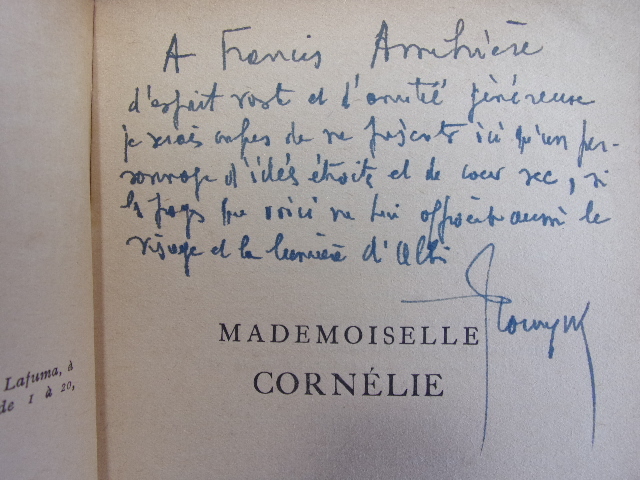 A Francis Ambrière
d'esprit vaste et d'amitié généreuse
je serais confus de ne présenter ici qu'un per-
sonnage d'idées étroites et de coeur sec, si
les pages que voici ne lui offraient aussi le
visage et la lumière d'Albi
MADEMOISELLE
CORNÉLIE
Lafuma, à
de 1 à 20,